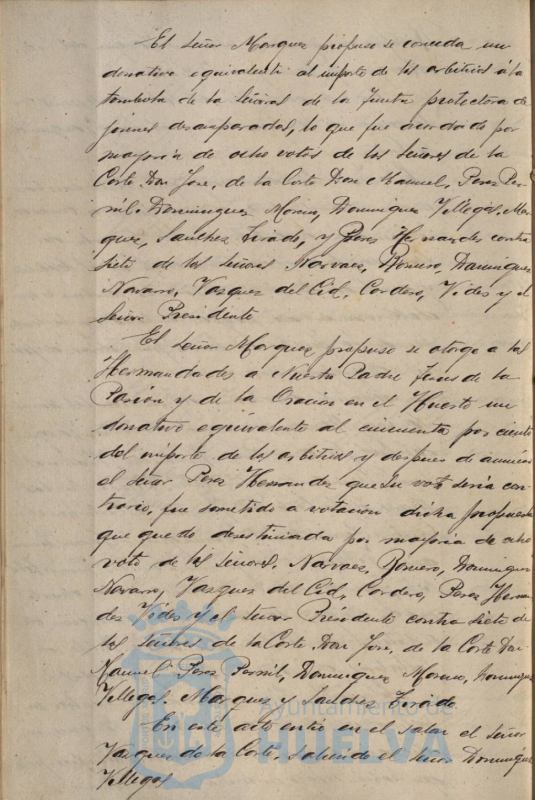 El señor Marquez propuso se conceda un
donativo equivalente al importe de los arbitrios á la
tombola de la Señoras de la Junta protectora de
jovenes desamparados, lo que fue acordado por
mayoria de ocho votos de los Señores de la
Corte Don Jose, de la Corte Don Manuel, Perez Per-
nil. Dominguez Moreno, Dominguez Villegas. Mar
quez, Sanchez Tirado, y Perez Hernandez contra
siete de los señores Narvaez, Romero, Dominguez
Navarro, Vazquez del Cid, Cordero, Vides y el
Señor Presidente
El señor Marquez propuso se otorge a las
Hermandades a Nuestro Padre Jesus de la
Pasión y de la Oracion en el Huerto un
donativo equivalente al cincuenta por ciento
del importe de los arbitrios y despues de anunciar
el señor Perez Hernandez que su voto seria con
trario, fue sometido a votación dicha propuesta
que quedo desestimada por mayoria de ocho
voto de los señores. Narvaez, Romero, Dominguez
Navarro, Vazquez del Cid, Cordero, Perez Hernan
dez Vides y el señor Présidente contra siete de
los señores de la Corte Don Jose, de la Corte Don
Manuel Perez Pernil, Dominguez Moreno, Dominguez
Villegas. Marquez y Sanchez Tirado
En este acto entró en el salon el señor
Vazquez de la Corte, saliendo el señor Dominguez
Villegas
Ayuntamiento de
HUELVA